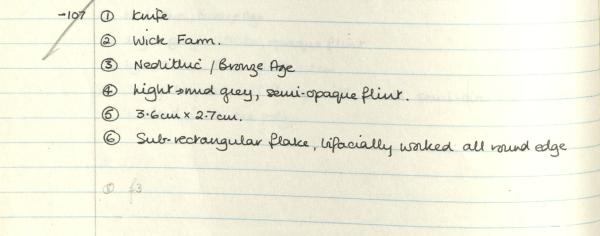 -107 ① Knife
② Wick Farm.
③ Neolithic / Bronze Age
④ Light → mid grey, semi-opaque flint.
⑤ 3.6cm × 2.7cm.
⑥ Sub-rectangular flake, bifacially worked all round edge